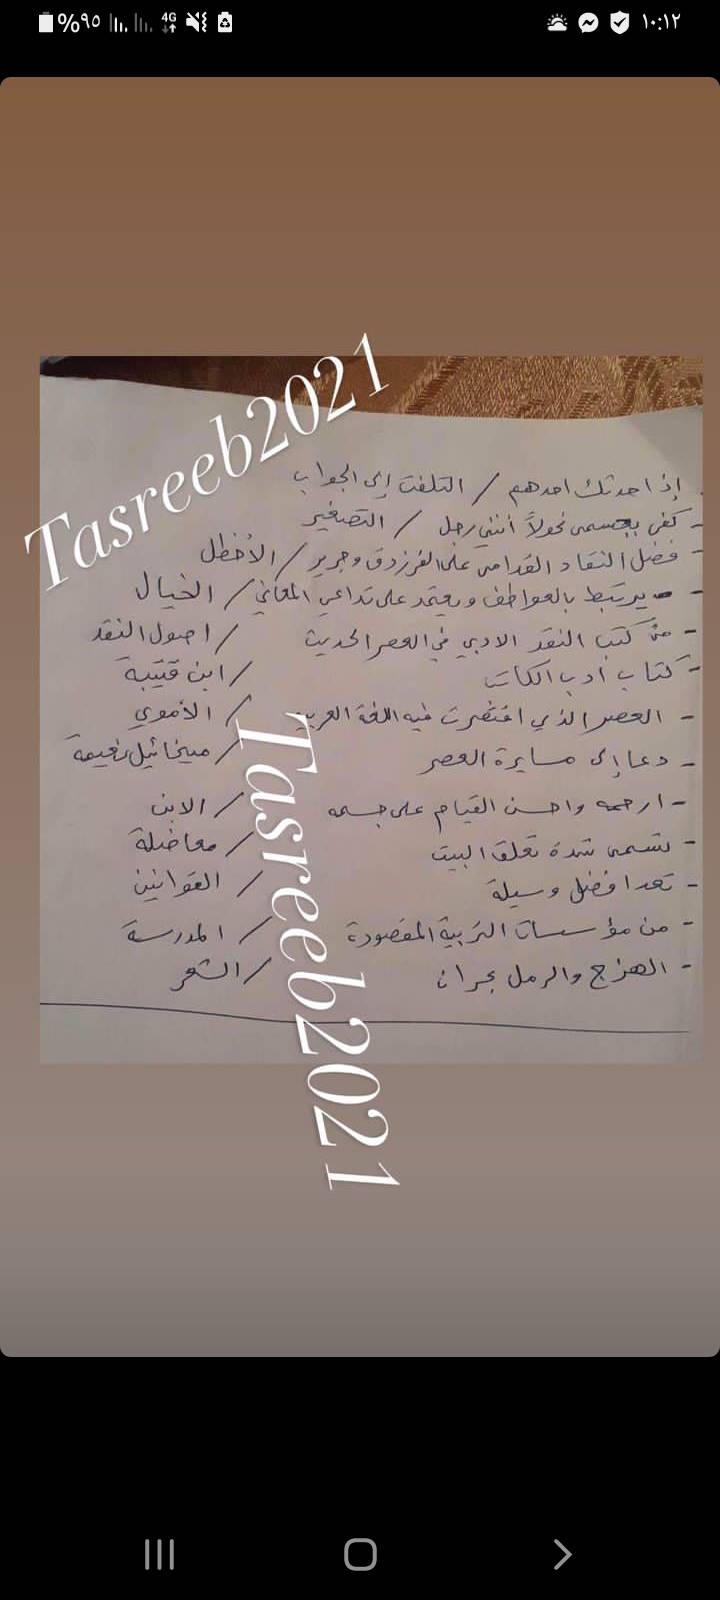 ١٠:١٢
%٩٥
4G
Tasreeb2021
إذا حدثك احدهم / التلفت إلى الجواب
- كفى بجسمي نحولاً أنني رجل / التصغير
- فضل النقاد القدامى على الفرزدق وجرير / الأخطل
- يرتبط بالعواطف ويعتمد على تداعي المعاني / الخيال
- من كتب النقد الادبي في العصر الحديث / اصول النقد
- كتاب أدب الكاتب / ابن قتيبة
- العصر الذي اقتصرت فيه اللغة العربية / الأموي
- دعا إلى مسايرة العصر / ميخائيل نعيمة
- ارحمه واحسن القيام على جسمه / الابن
- تسمى شدة تعلق البيت / معاضلة
- تعد افضل وسيلة / القوانين
- من مؤسسات التربية المقصودة / المدرسة
- الهزج والرمل بحران / الشعر
Tasreeb2021